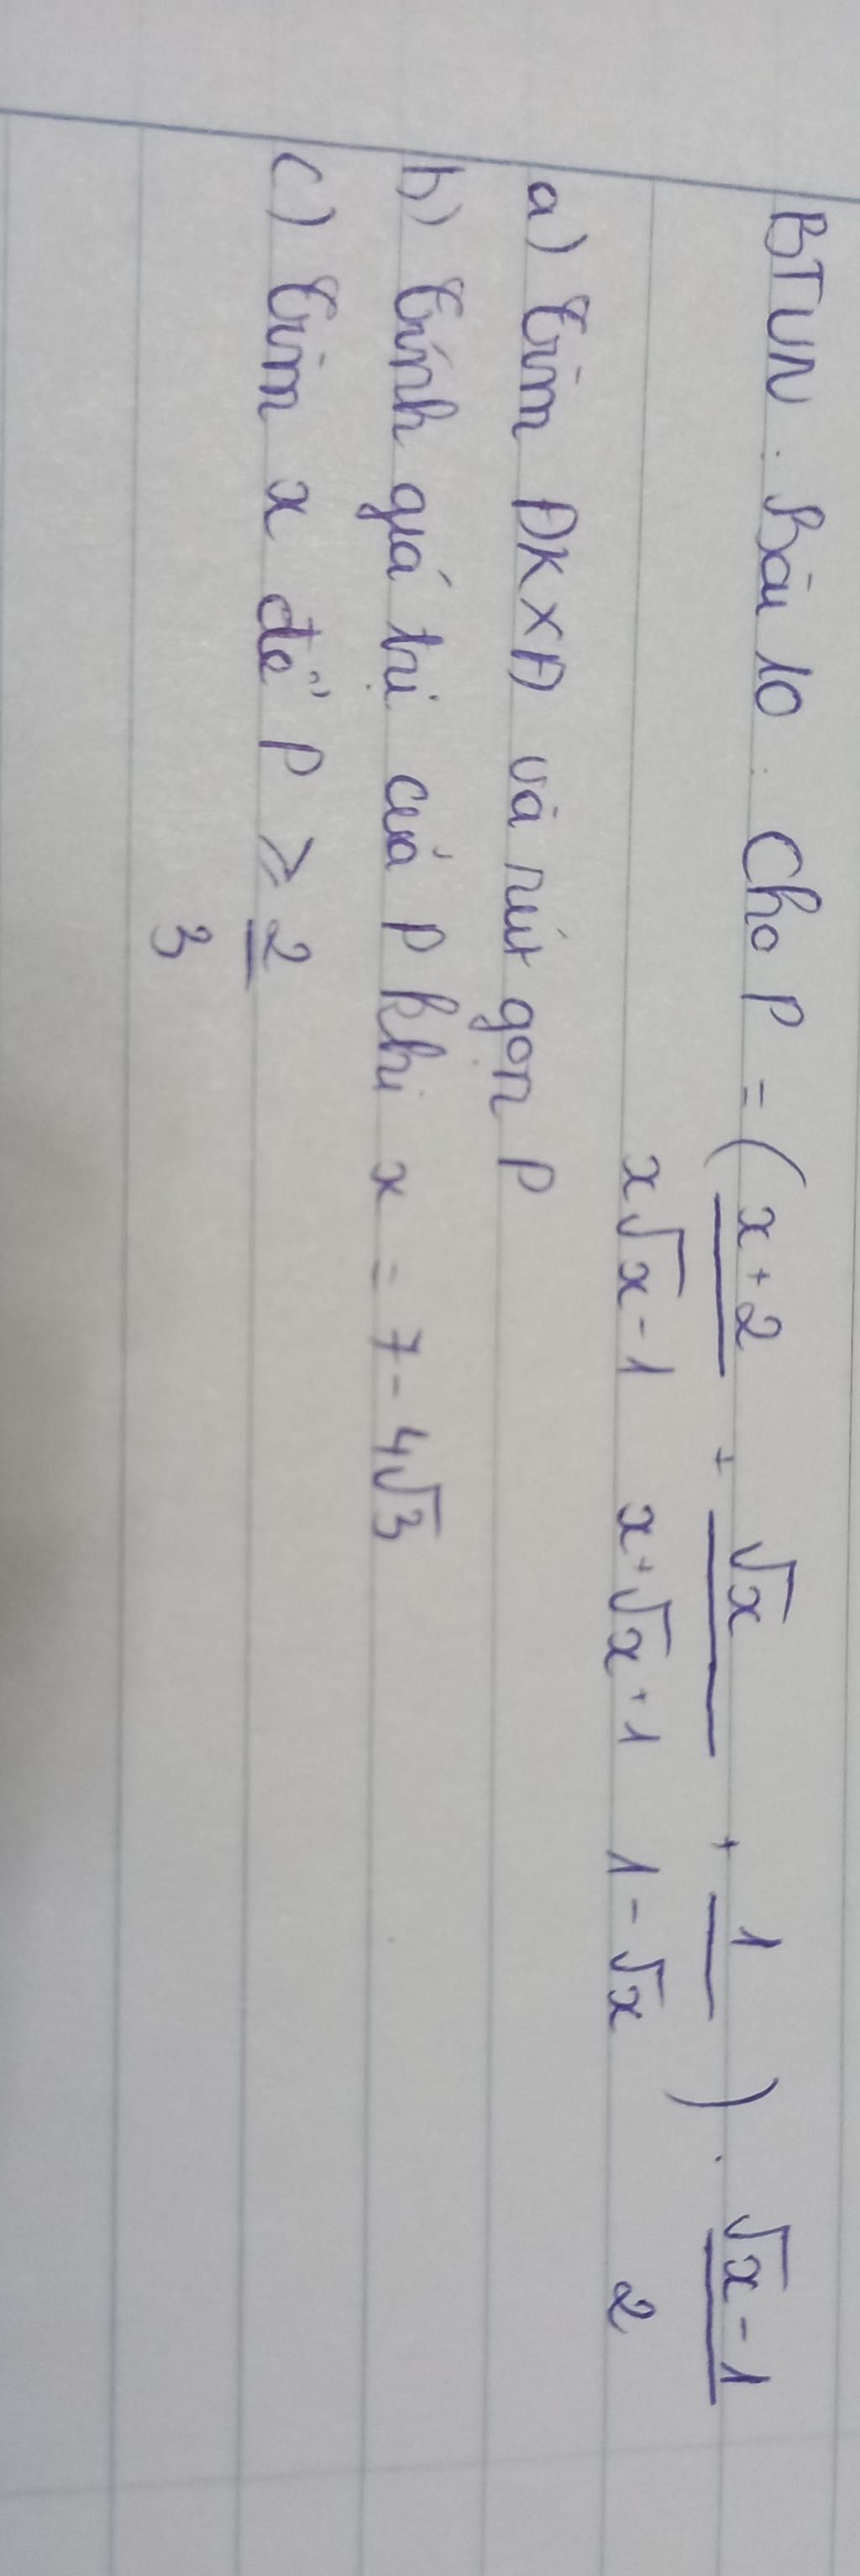 BTVN. Bài 10. Cho P = ( x+2 / x√x - 1 + √x / x+√x+1 + 1 / 1-√x ) . √x - 1 / 2
a) Tìm ĐKXĐ và rút gọn P
b) Tính giá trị của P khi x = 7 - 4√3
c) Tìm x để P ≥ 2/3